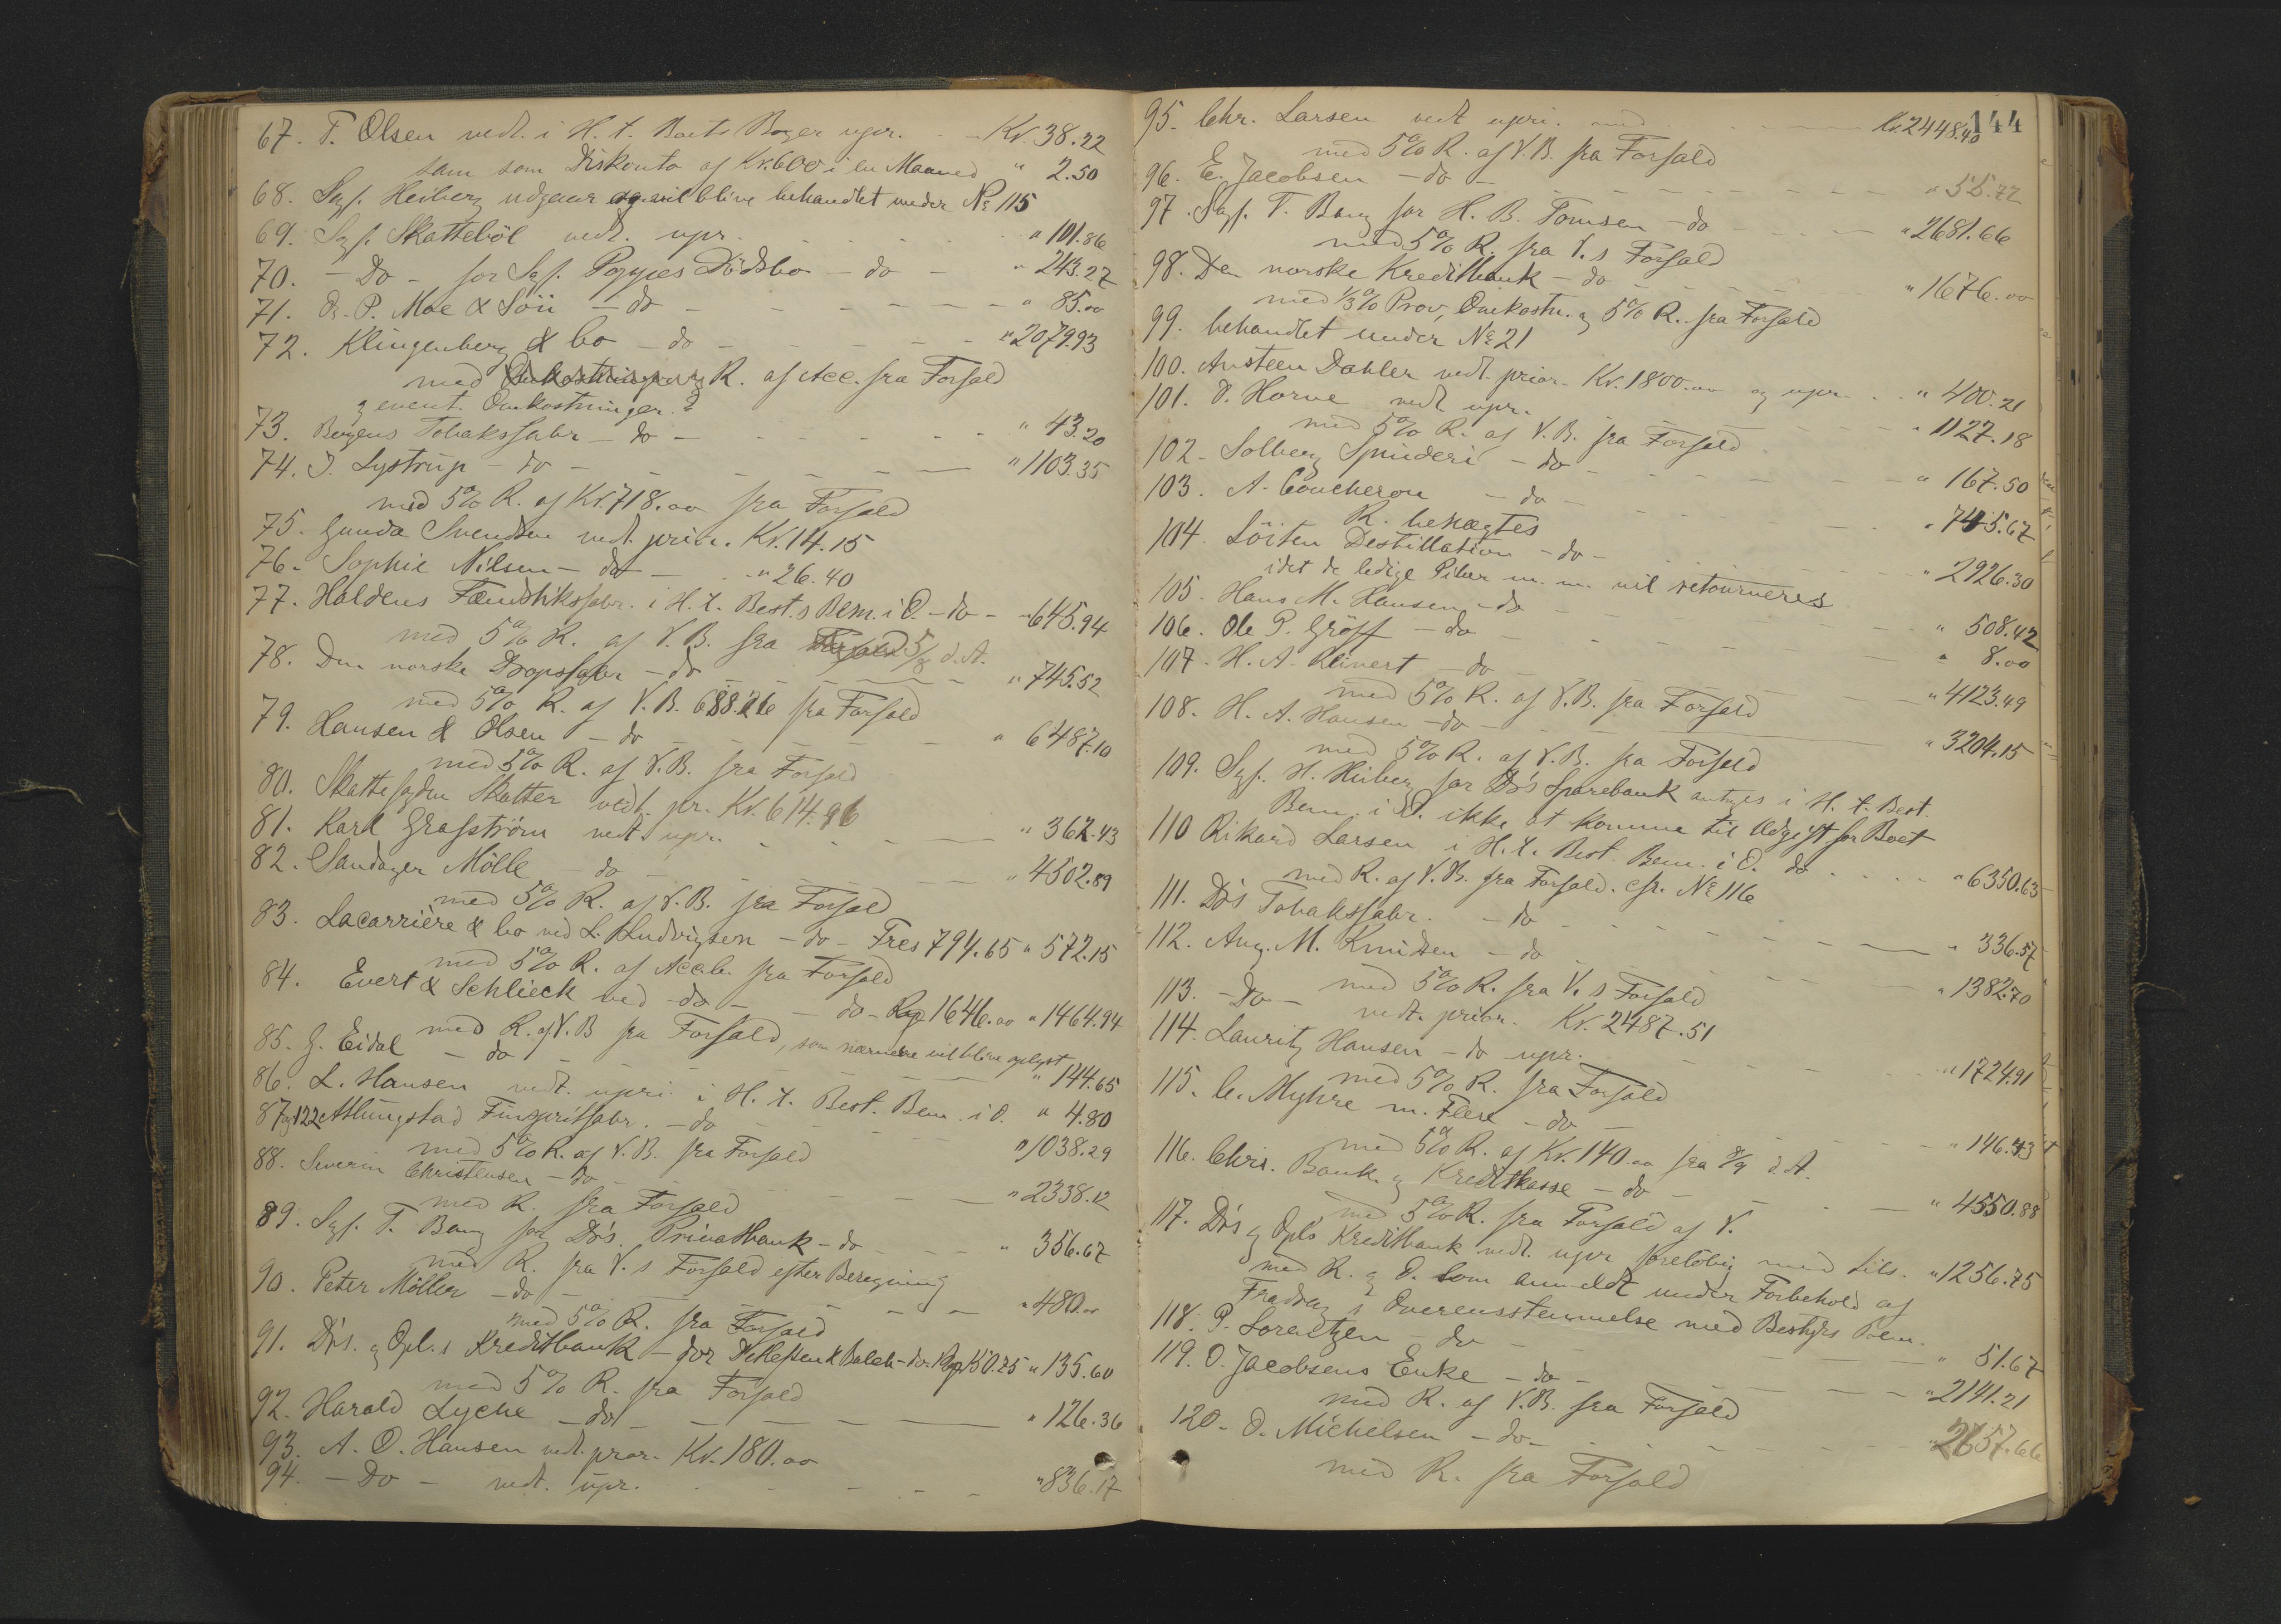 67. T. Olsen vedt. i H. t. Boets Bøger upr. - - Kr. 38.22
sam som Diskonto af Kr. 600 i en Maaned " 2.50
68. Sagf. Heiberg udgaar og vil blive behandlet under No 115
69. Sagf. Skatteböl vedt. upr. " 101.86
70. - Do - for Sagf. Poppes Dödsbo - do - " 243.27
71. O. P. Moe & Sön - do - " 85.00
72. Klingenberg & Co - do - " 2079.93
med Omkostninger og R. af Acc. fra Forfald
og event. Omkostninger.
73. Bergens Tobaksfabr - do - " 43.20
74. J. Lystrup - do - " 1103.35
med 5% R. af Kr. 718.00 fra Forfald
75. Gunda Svendsen vedt. prior. Kr. 14.15
76. Sophie Nilsen - do - " 26.40
77. Haldens Tændstiksfabr. i H. t. Best.s Bem. i O. - do - " 645.94
med 5% R. af V. B. fra Forfald 5/8 d. A.
78. Den norske Dropsfabr - do " 745.52
med 5% R. af V. B. 688.26 fra Forfald
79. Hansen & Olsen - do " 6487.10
med 5% R. af V. B. fra Forfald
80. Skattefogden Skatter vedt. pr. Kr. 614.96
81. Karl Grafström vedt upr. " 362.43
82. Sandager Mölle - do - " 4502.89
med 5% R. af V. B. fra Forfald
83. Lacarrière & Co ved L. Ludvigsen - do - Frcs 794.65 " 572.15
med 5% R. af Accb. fra Forfald
84. Evert & Schlieck ved - do - - do - 1646.00 " 1464.94
med R. af V. B fra Forfald, som nærmere vil blive oplyst
85. G. Eidal - do " 144.65
86. L. Hansen vedt. upri. i H. t. Best. Bem. i O. " 4.80
87 og 122 Atlungstad Finspritfabr. - do " 1038.29
med 5% R. af V. B. fra Forfald
88. Severin Christensen - do - " 2338.12
med R. fra Forfald
89. Sagf. T. Bang for D's. Privatbank - do " 356.67
med R. fra V.s Forfald efter Beregning
90. Peter Möller - do - " 480.00
med 5% R. fra Forfald
91. Drs. og Opl.s Kreditbank - for & Balch - do - 150.75 " 135.60
med 5% R. fra Forfald
92. Harald Lyche - do - " 126.36
93. A. O. Hansen vedt. prior. Kr. 180.00
94. - Do - vedt. upr. " 836.17
144
95. Chr. Larsen vedt upri. med Kr. 2448.40
med 5% R. af V. B. fra Forfald
96. E. Jacobsen - do - " 55.72
97. Sagf. T. Bang for H. B. Tomsen - do " 2681.66
med 5% R. fra V.s Forfald
98. Den norske Kreditbank - do " 1676.00
med 1/3% Prov, Omkostn. og 5% R. fra Forfald
99. behandlet under No 21
100. Austeen Dahler vedt. prior. Kr. 1800.00 og upr. " 400.21
101. P. Horne vedt upr. " 1127.18
med 5% R. af V. B. fra Forfald
102. Solberg Spinderi - do - " 167.50
103. A. Coucheron - do - " 745.67
R. benægtes
104. Löiten Destillation - do - " 2926.30
idet de ledige Piber m. m. vil retourneres
105. Hans M. Hansen - do " 508.42
106. Ole P. Gröff - do " 8.00
107. H. A. Reinert - do " 4123.49
med 5% R. af V. B. fra Forfald
108. H. A. Hansen - do - " 3204.15
med 5% R. af V. B. fra Forfald
109. Sagf. H. Heiberg for D's Sparebank antages i H. t. Best.
Bem. i O. ikke at komme til Udgift for Boet
110 Rikard Larsen i H. t. Best. Bem. i O. do " 6350.63
med R. af V. B. fra Forfald. cfr. No 116
111. D's Tobaksfabr. - do " 336.57
112. Aug. M. Knudsen - do " 1382.70
med 5% R. fra V.s Forfald
113. - Do - vedt. prior. Kr. 2487.51
114. Lauritz Hansen - do upr. " 1724.91
med 5% R. fra Forfald
115. C. Myhre m. Flere - do - " 146.43
med 5% R. af Kr. 140.00 fra 8/9 d. A.
116. Chris. Bank og Kreditkasse - do - " 4550.88
med 5% R. fra Forfald af V.
117. Drs og Opls Kreditbank vedt. upr foreløbig med tils. " 1256.75
med R. og O. som anmeldt under Forbehold af
Fradrag i Overensstemmelse med Bestyrs Bem.
118. P. Lorentzen - do " 51.67
119. O. Jacobsens Enke - do - " 2141.21
med R. af V. B. fra Forfald
120. O. Michelsen - do - " 2657.66
med R. fra Forfald